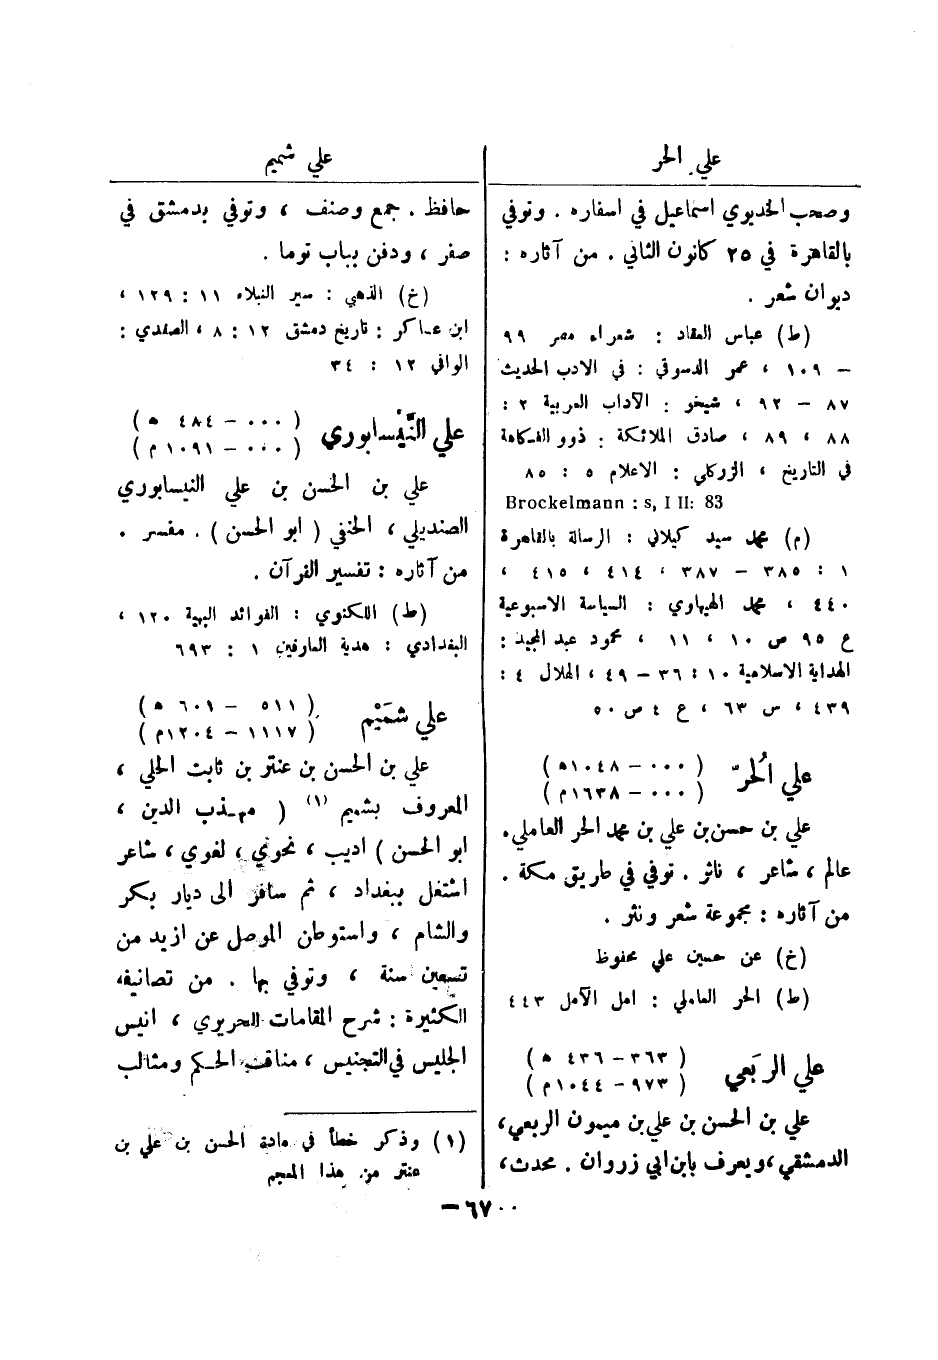 علي الحر
وصحب الخديوي اسماعيل في اسفاره . وتوفي
بالقاهرة في ٢٥ كانون الثاني . من آثاره :
ديوان شعر .
(ط) عباس العقاد : شعراء مصر ٩٩
– ١٠٩ ، عمر الدسوقي : في الادب الحديث
٨٧ – ٩٢ ، شيخو : الآداب العربية ٢ :
٨٨ ، ٨٩ ، صادق الملائكة : ذوو الفكاهة
في التاريخ ، الزركلي : الاعلام ٥ : ٨٥
Brockelmann : s, I II: 83
(م) محمد سيد كيلاني : الرسالة بالقاهرة
١ : ٣٨٥ – ٣٨٧ ، ٤١٤ ، ٤١٥ ،
٤٤٠ ، محمد الهياوي : السياسة الاسبوعية
ع ٩٥ ص ١٠ ، ١١ ، محمود عبد المجيد :
الهداية الاسلامية ١٠ : ٣٦ – ٤٩ ، الهلال ٤ :
٤٣٩ ، س ٦٣ ، ع ٤ ص ٥٠
علي الحُرّ
( ٠٠٠ – ١٠٤٨ ه )
( ٠٠٠ – ١٦٣٨ م )
علي بن حسن بن علي بن محمد الحر العاملي .
عالم ، شاعر ، ناثر . توفي في طريق مكة .
من آثاره : مجموعة شعر ونثر .
(خ) عن حسين علي محفوظ
(ط) الحر العاملي : امل الآمل ٤٤٣
علي الربَعي
( ٣٦٣ – ٤٣٦ ه )
( ٩٧٣ – ١٠٤٤ م )
علي بن الحسن بن علي بن ميمون الربعي ،
الدمشقي ، ويعرف بابن ابي زروان . محدث ،
علي شميم
حافظ . جمع وصنف ، وتوفي بدمشق في
صفر ، ودفن بباب توما .
(خ) الذهبي : سير النبلاء ١١ : ١٢٩ ،
ابن عساكر : تاريخ دمشق ١٢ : ٨ ، الصفدي :
الوافي ١٢ : ٣٤
علي النَّيْسابوري
( ٠٠٠ – ٤٨٤ ه )
( ٠٠٠ – ١٠٩١ م )
علي بن الحسن بن علي النيسابوري
الصندلي ، الحنفي ( ابو الحسن ) . مفسر .
من آثاره : تفسير القرآن .
(ط) اللكنوي : الفوائد البهية ١٢٠ ،
البغدادي : هدية العارفين ١ : ٦٩٣
علي شمَيْم
( ٥١١ – ٦٠١ ه )
( ١١١٧ – ١٢٠٤ م )
علي بن الحسن بن عنتر بن ثابت الحلي ،
المعروف بشميم (١) ( مهذب الدين ،
ابو الحسن ) اديب ، نحوي ، لغوي ، شاعر
اشتغل ببغداد ، ثم سافر الى ديار بكر
والشام ، واستوطن الموصل عن ازيد من
تسعين سنة ، وتوفي بها . من تصانيفه
الكثيرة : شرح المقامات الحريري ، انيس
الجليس في التجنيس ، مناقب الحكم ومثالب
(١) وذكر خطأ في مادة الحسن بن علي بن
عنتر من هذا المعجم
–٦٧٠٠